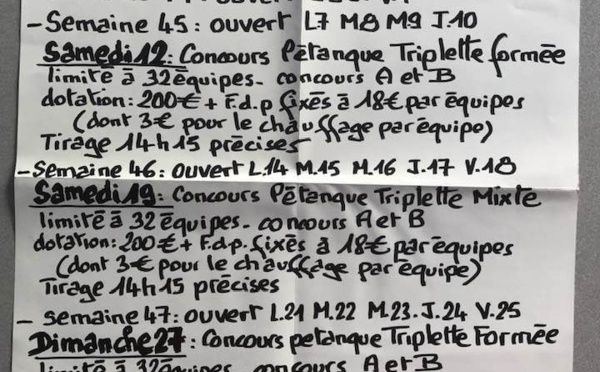 - Semaine 45: ouvert L7 M8 M9 J10
Samedi 12: Concours Pétanque Triplette formée
limité à 32 équipes - concours A et B
dotation: 200€ + F.d.p fixés à 18€ par équipes
(dont 3€ pour le chauffage par équipe)
Tirage 14h15 précises
- Semaine 46: ouvert L.14 M.15 M.16 J.17 V.18
Samedi 19: Concours Pétanque Triplette Mixte
limité à 32 équipes - concours A et B
dotation: 200€ + F.d.p. fixés à 18€ par équipes
(dont 3€ pour le chauffage par équipe)
Tirage 14h15 précises
- Semaine 47: ouvert L.21 M.22 M.23. J.24 V.25
Dimanche 27: Concours petanque Triplette Formée
limité à 32 équipes - concours A et B